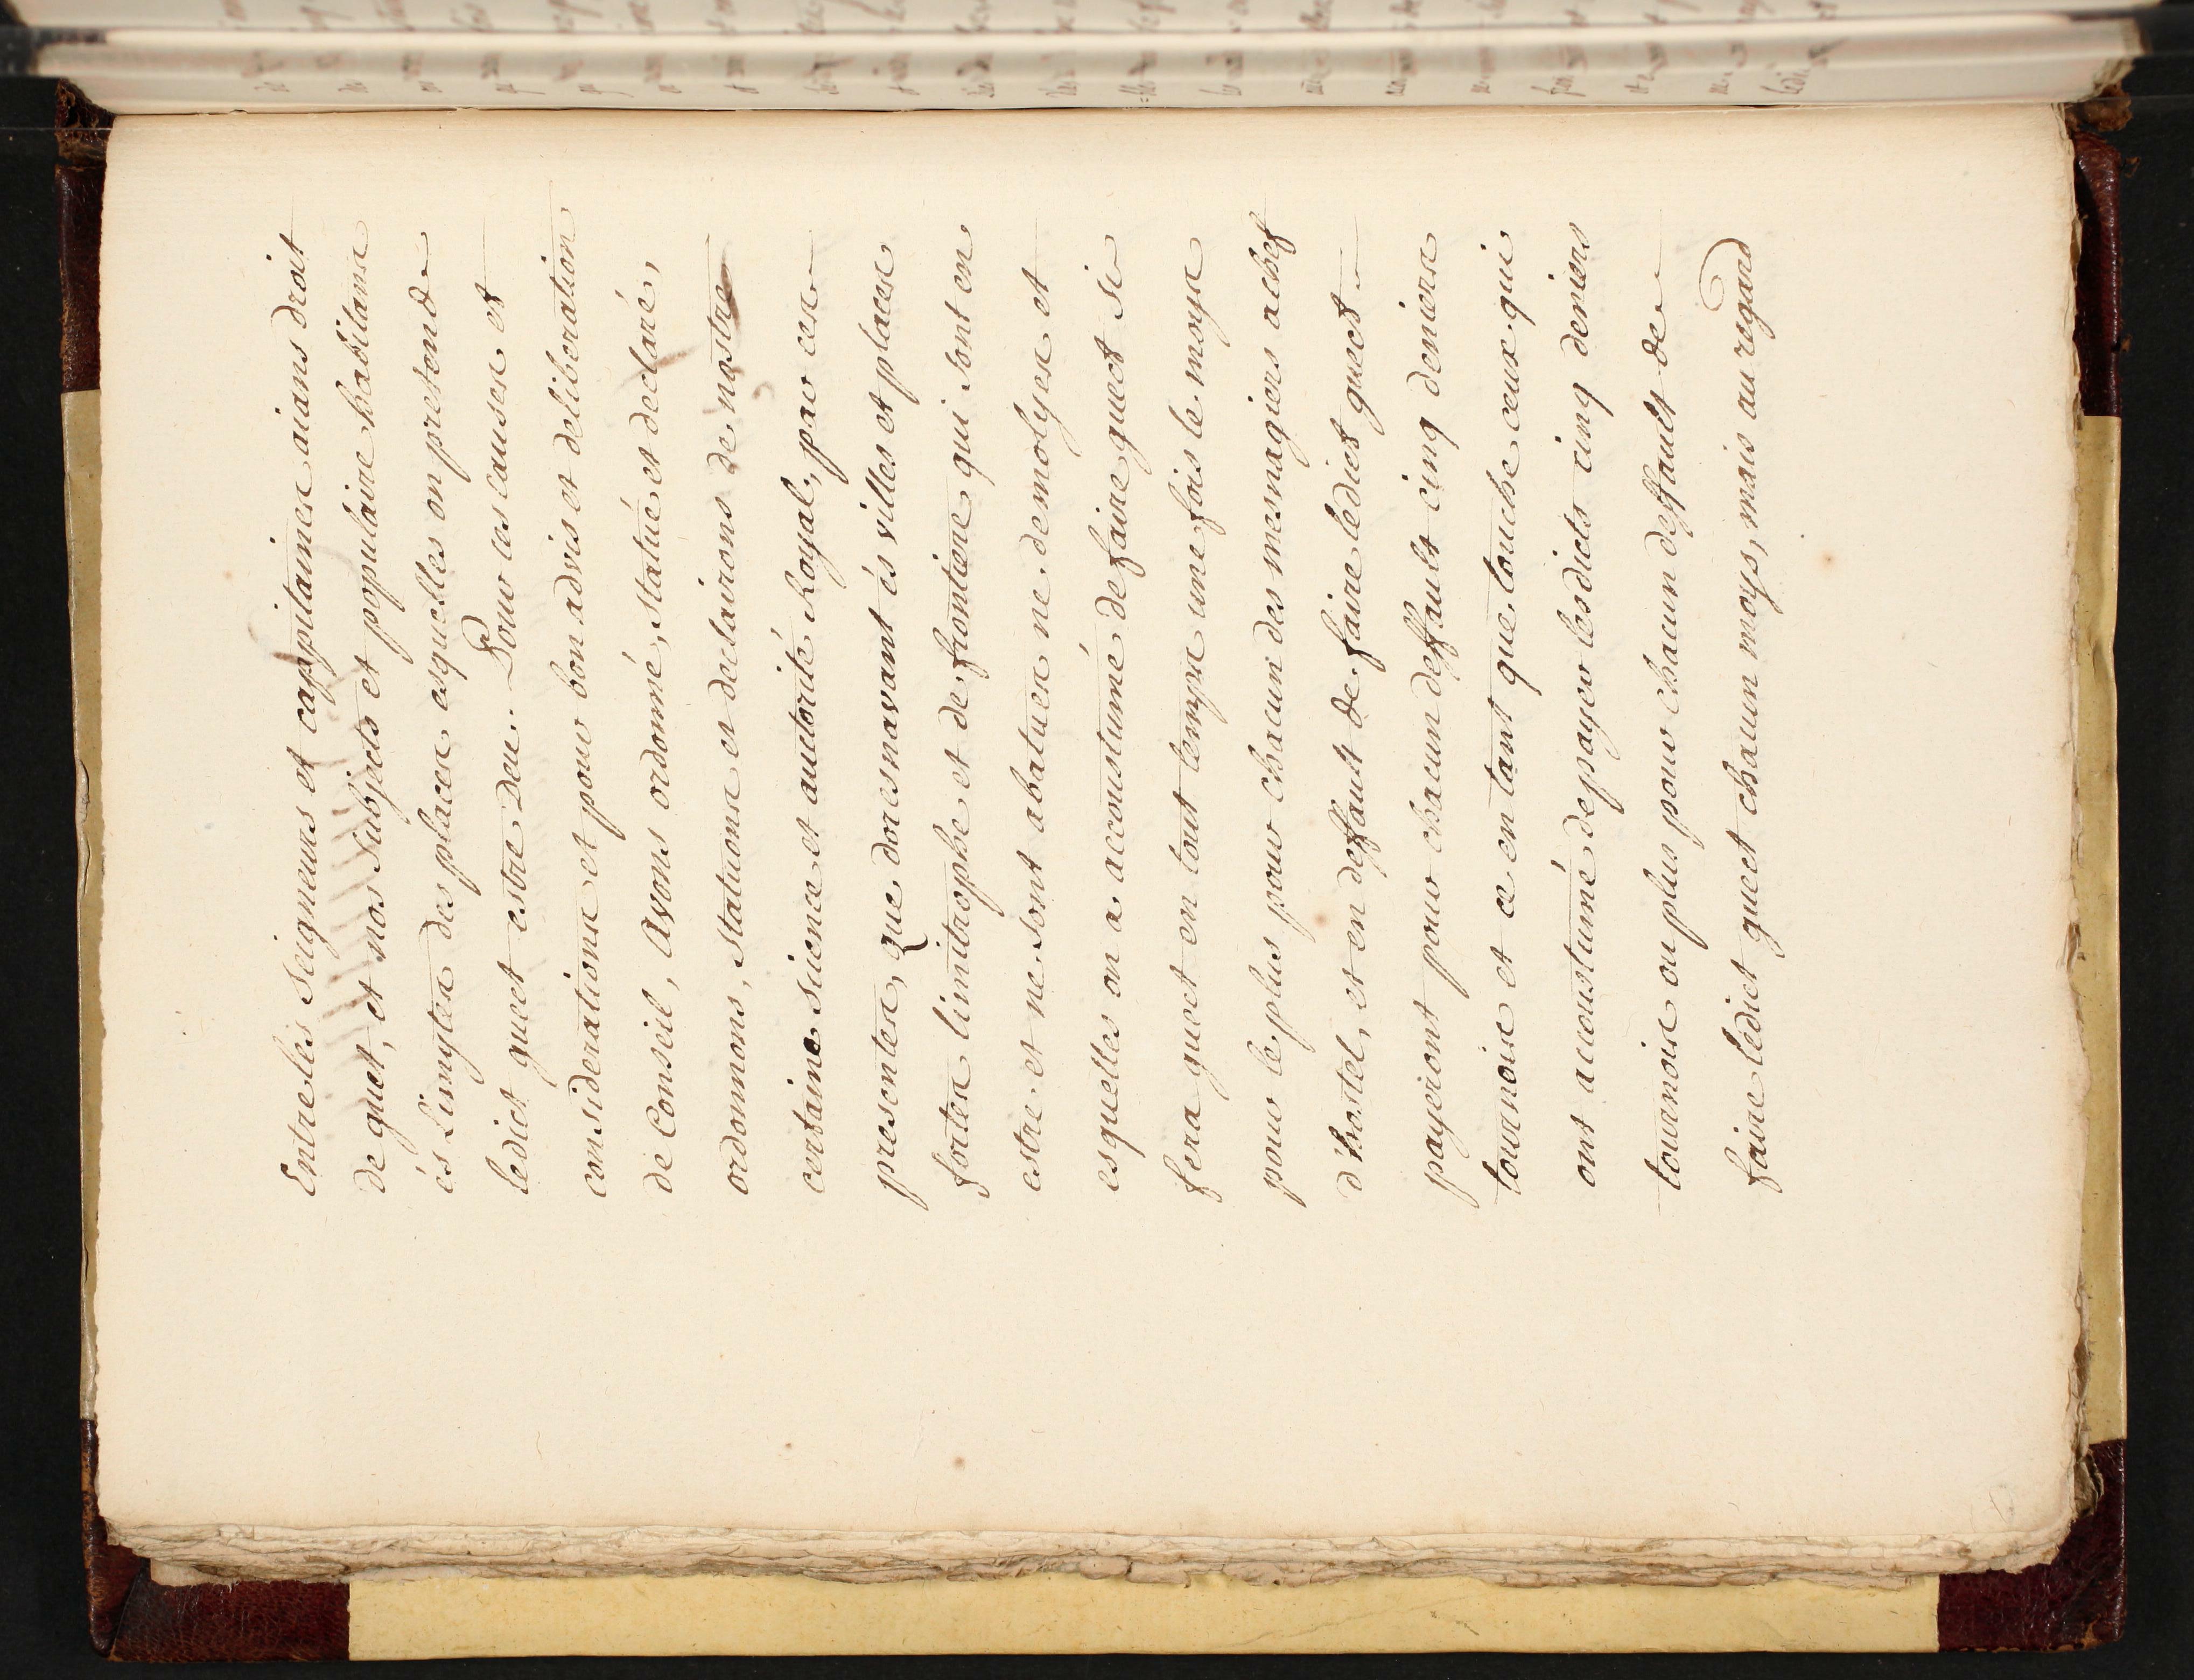 Entre les Seigneurs et cappitaines aians droit
de guet, et nos Subjects et populaire habitans
és Limytes des places esquelles on pretend
ledict guect estre Deu. Pour ces causes et
considerations et pour bon advis et deliberation
de Conseil, avons ordonné, statué et declaré,
ordonnons, statuons et declairons de nostre
certaine science et auctorité Royal, par ces
presentes, que doresnavant és villes et places
fortes limitrophe et de frontiere qui sont en
estre et ne sont abatues ne demolyes et
esquelles on a accoustumé de faire guect se
fera guect en tout temps une fois le moys
pour le plus pour chacun des mesnagiers a chef
d'hostel, et en deffault de faire ledict guect
payeront pour chacun deffault cinq deniers
tournois et ce en tant que touche ceux qui
ont accoustumé de payer lesdicts cinq deniers
tournois ou plus pour chacun deffault de
faire ledict guect chacun moys, mais au regard